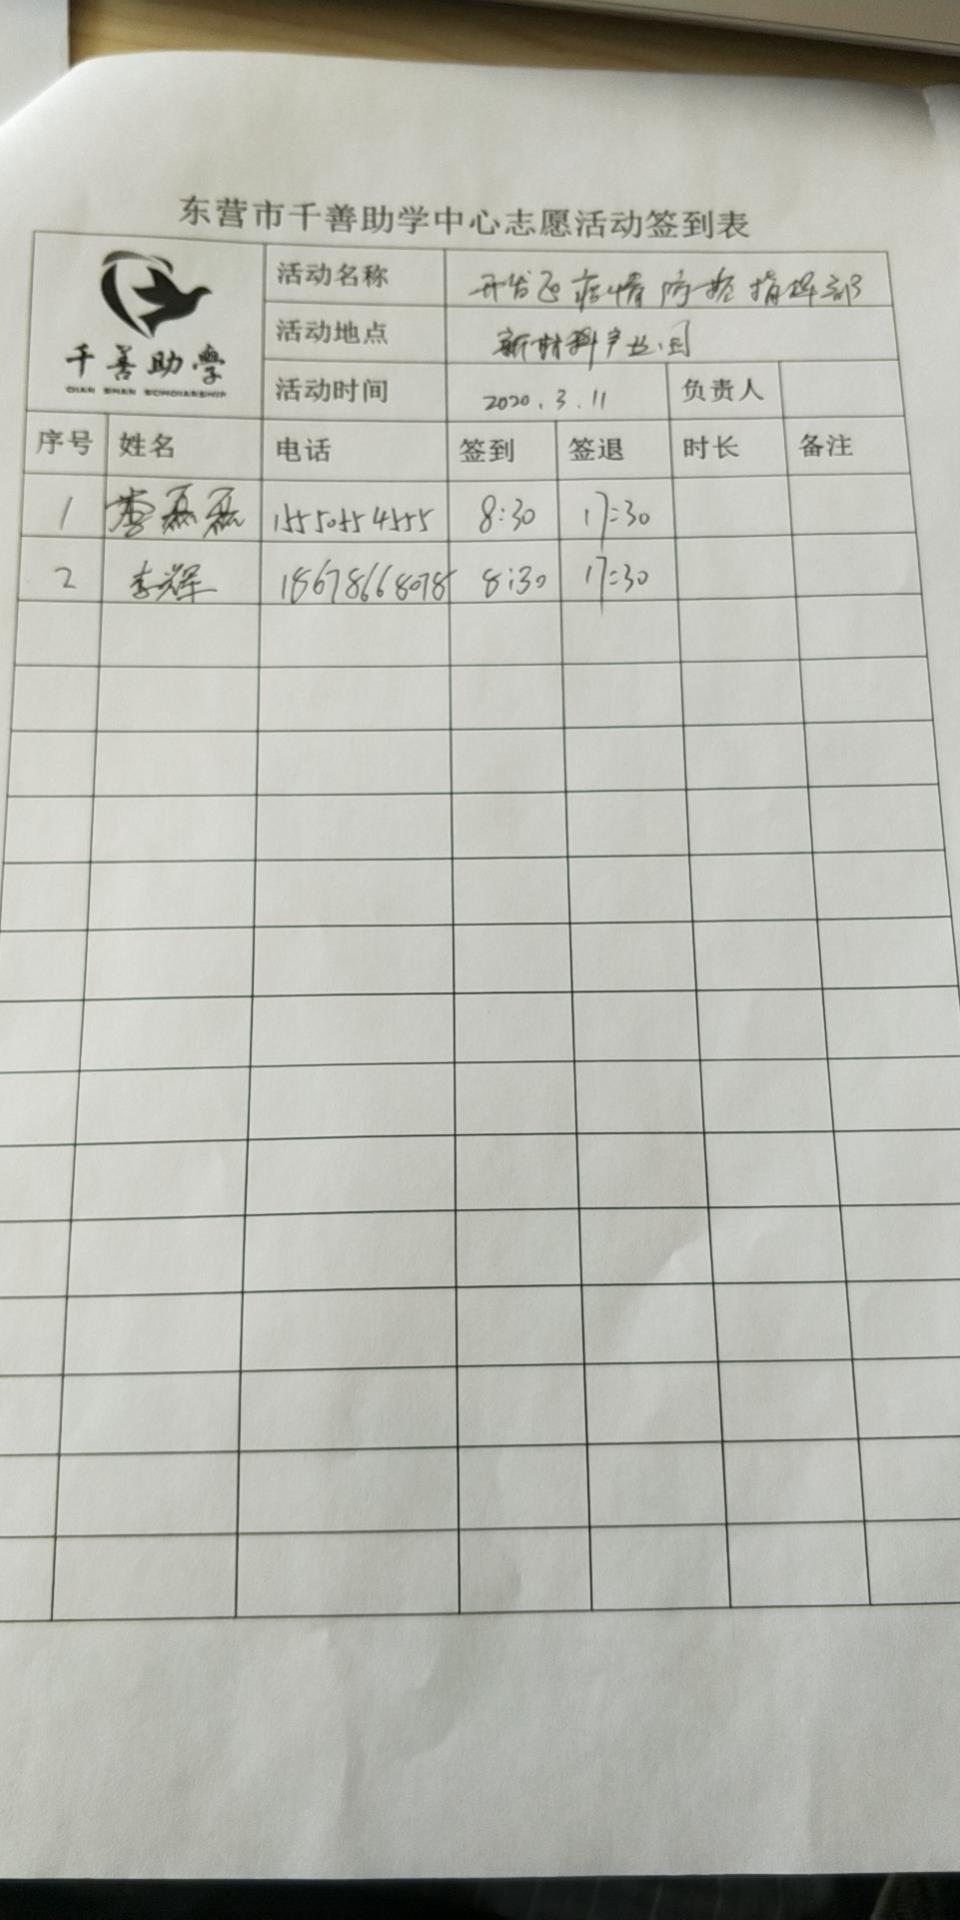 东营市千善助学中心志愿活动签到表
千善助学
QIAN SHAN SCHOLARSHIP
活动名称 开发区疫情防控指挥部
活动地点 新材料产业园
活动时间 2020.3.11 负责人
序号 姓名 电话 签到 签退 时长 备注
1 李磊磊 15550554555 8:30 17:30
2 李辉 18678668078 8:30 17:30